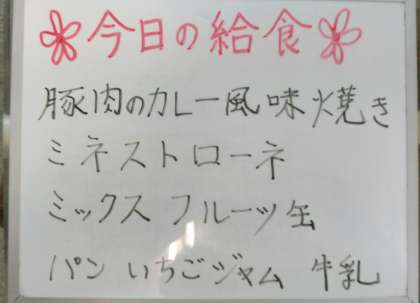 今日の給食
豚肉のカレー風味焼き
ミネストローネ
ミックス フルーツ缶
パン いちごジャム 牛乳